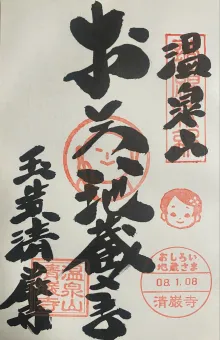 温泉山
お玄地蔵尊
玉黄清厳寺
おしろい
地蔵さま
08.1.08
清巌寺
温泉山
清巌寺